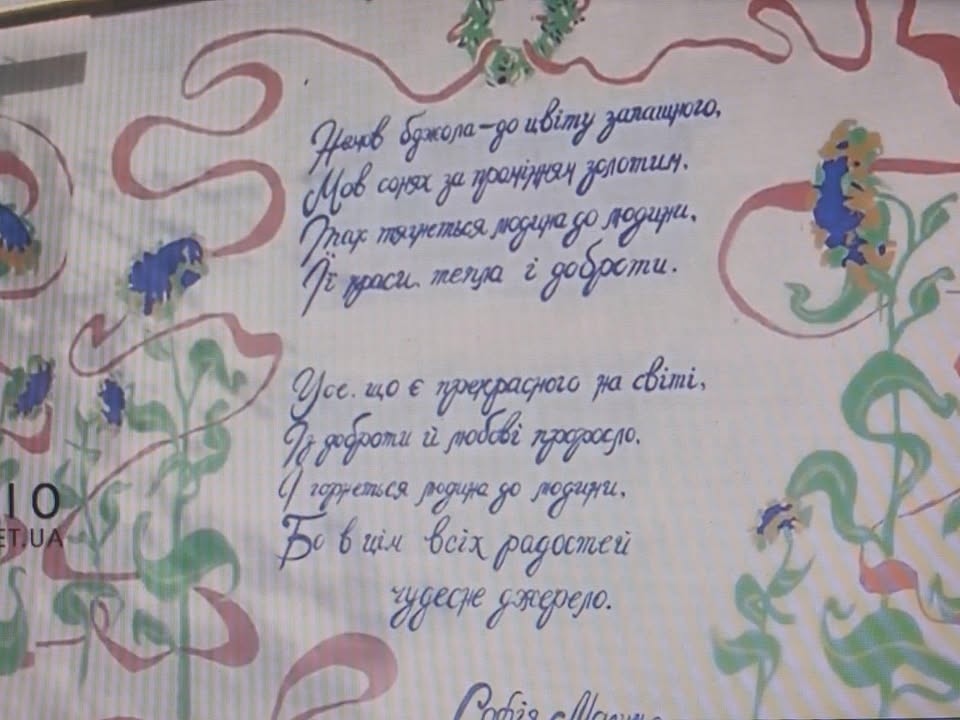 Немов бджола – до цвіту запашного,
Мов сонях за промінням золотим.
Так тягнеться людина до людини,
Її краси, тепла і доброти.
Усе, що є прекрасного на світі,
Із доброти й любові проросло.
І горнеться людина до людини,
Бо в цім всіх радостей
чудесне джерело.
IO
ET.UA
Софія